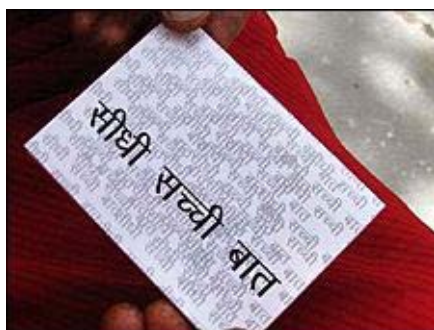 सीधी सच्ची बात